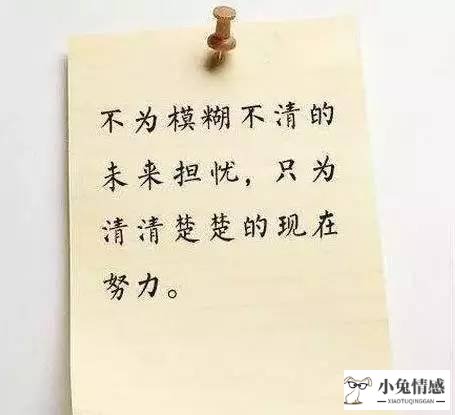 不为模糊不清的
未来担忧，只为
清清楚楚的现在
努力。
小兔情感
XIAOTUQINGGAN